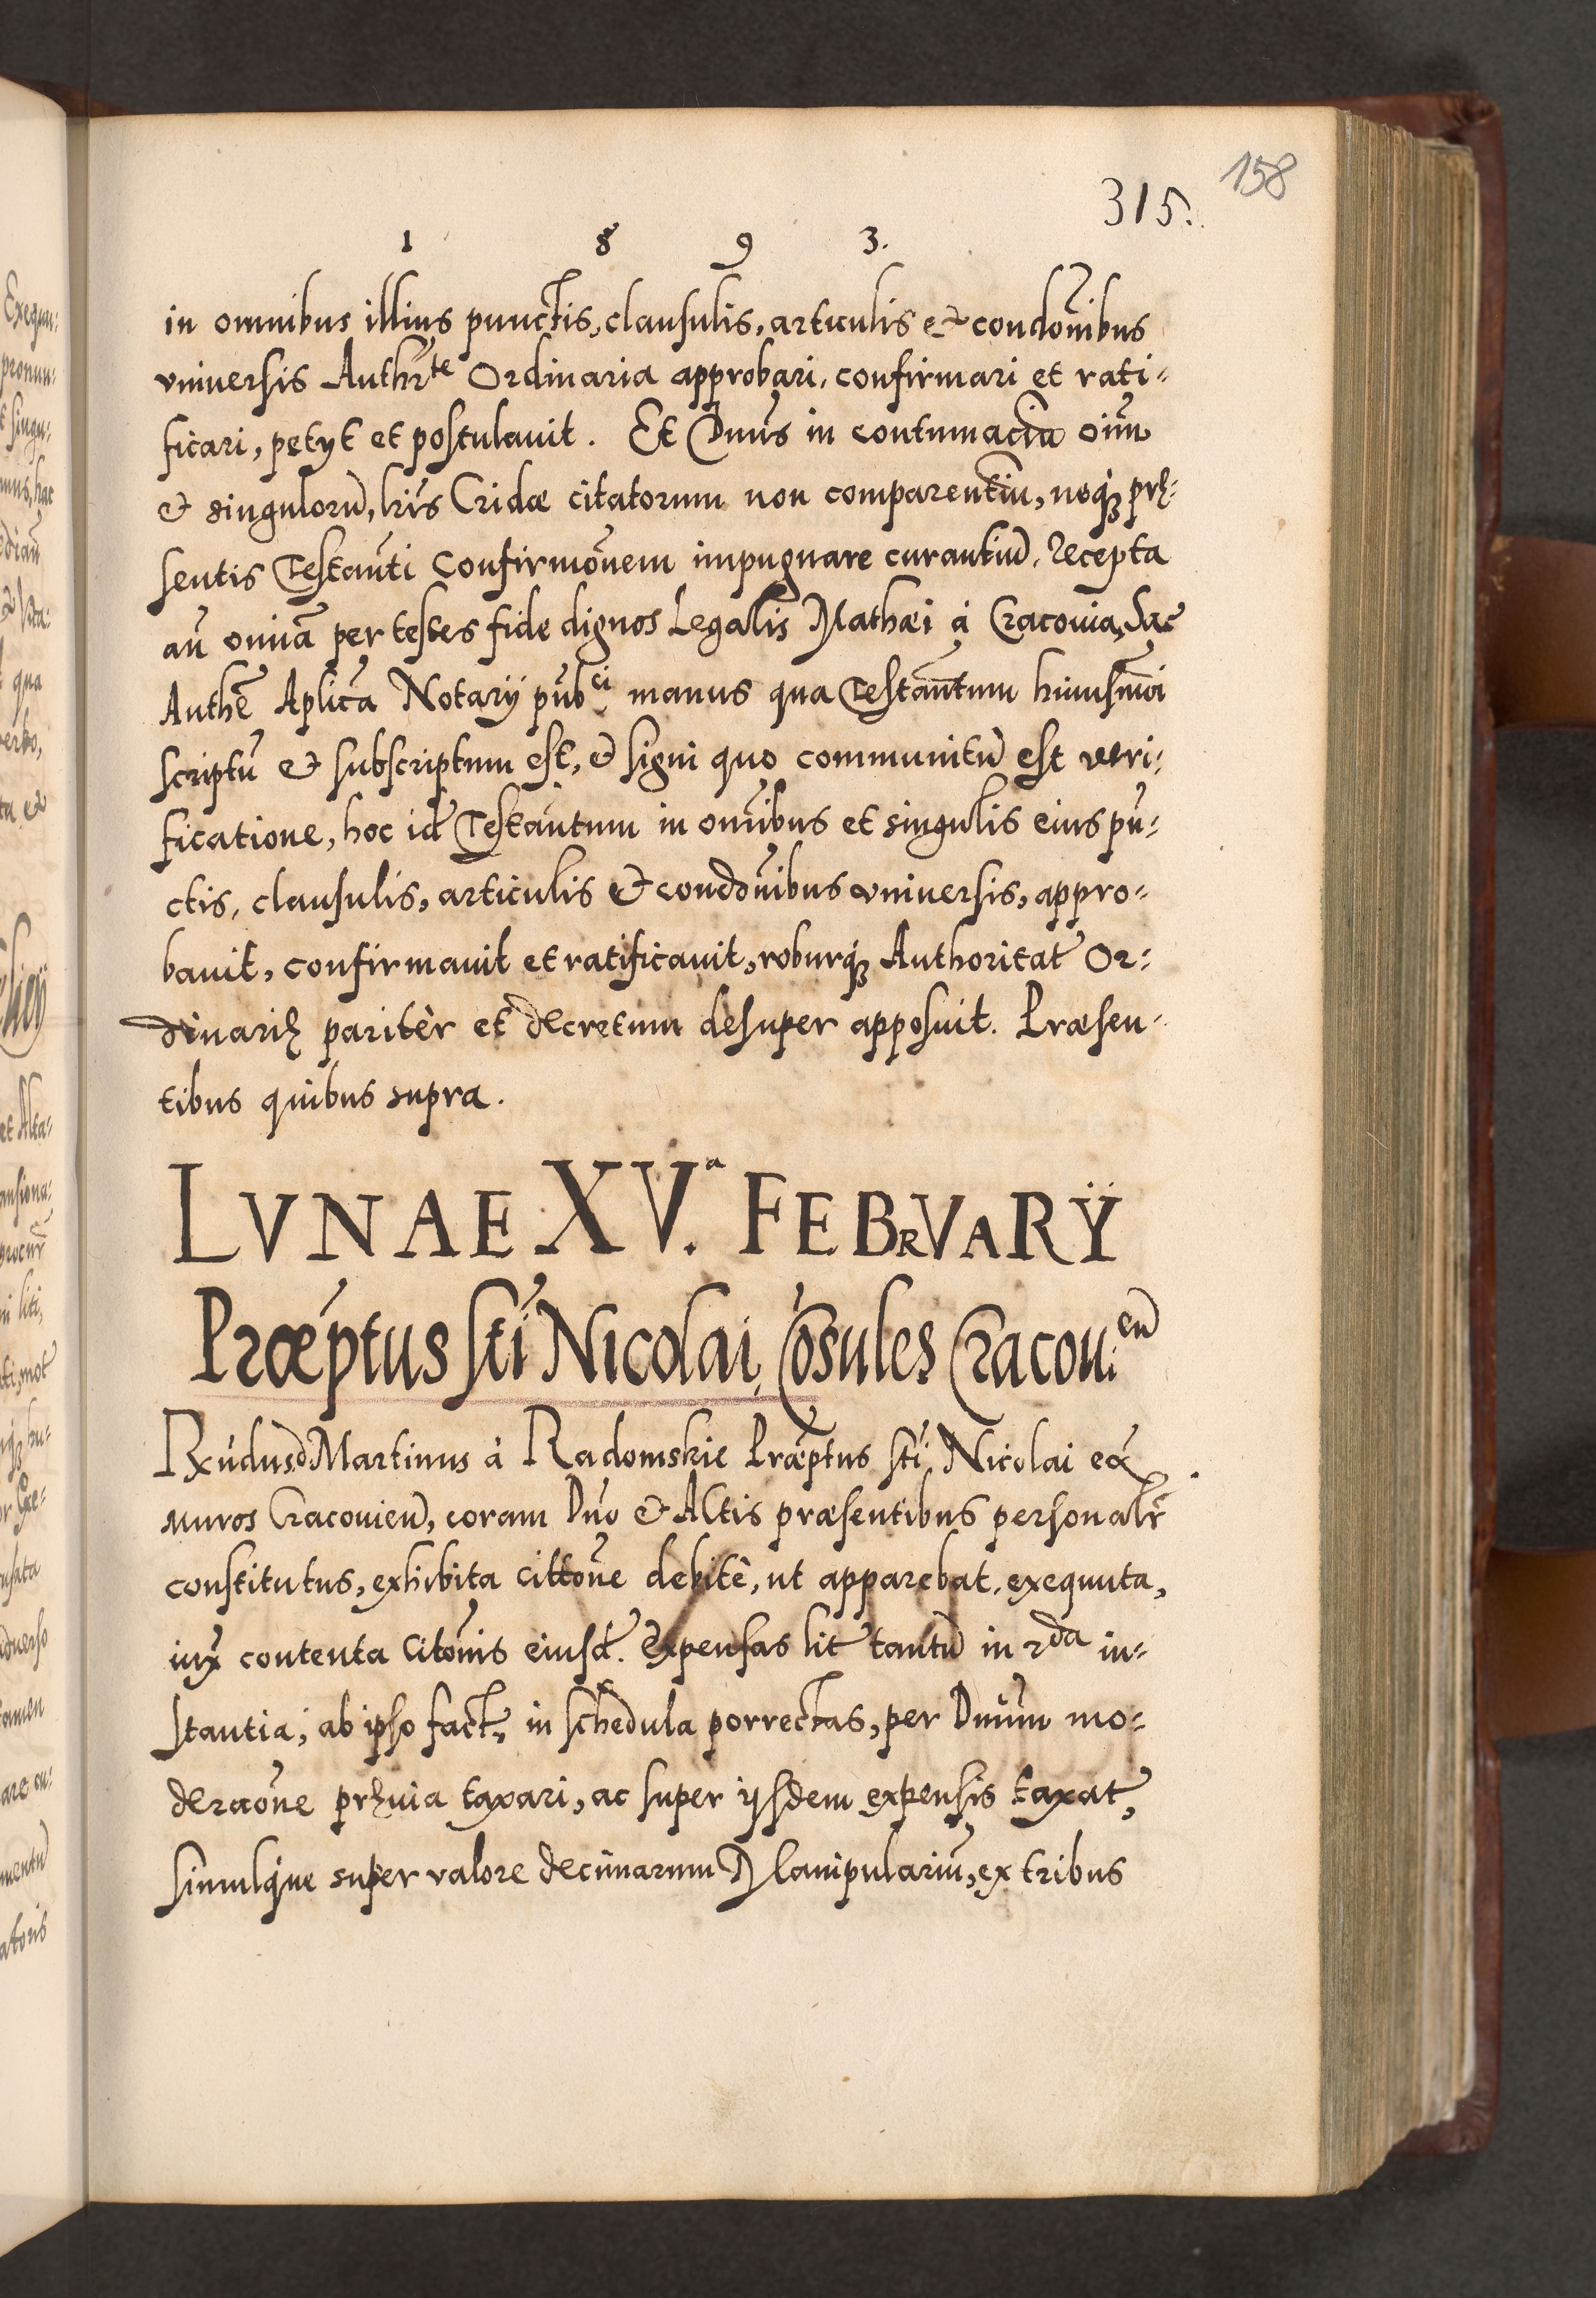 158
315.
1 8 9 3.
in omnibus illius punctis, clausulis, articulis et condōnibus
vniuersis Authrte Ordinaria approbari, confirmari et rati-
ficari, petyt et postulauit. Et Dnūs in contumacia oīum
et singulorū, lrīs Cridæ citatorum non comparentīu, neq; prę-
sentis Testanti Confirmōnem impugnare curantiū, recepta
aū omīa per testes fide dignos Legalis Mathæi à Cracouia, Sac
Authē Aplica Notarij pubci manus qua Testāntum huiusmōi
scriptū et subscriptum est, et signi quo communitū est veri-
ficatione, hoc id Testāntum in omībus et singulis eius pū-
ctis, clausulis, articulis et condōnibus vniuersis, appro-
bauit, confirmauit et ratificauit, roburq; Authoritat Or-
dinarię paritèr et decretum desuper apposuit. Præsen-
tibus quibus supra.
LVNAE XV.a FEBRVARŸ
Præptus sti Nicolai, Cōsules Cracou:en
Rxūdus d Martinus à Radomskie Præptus sti Nicolai ex
muros Cracouien, coram Dno et Actis præsentibus personalr
constitutus, exhibita cittōne debitè, ut apparebat, exequuta,
iux contenta Citōnis eiusd. Expensas lit tantū in 2da in-
stantia, ab ipso fact, in schedula porrectas, per Dnūm mo-
deraōne pręuia taxari, ac super ijsdem expensis taxat,
simulque super valore decimarum Manipulariū, ex tribus